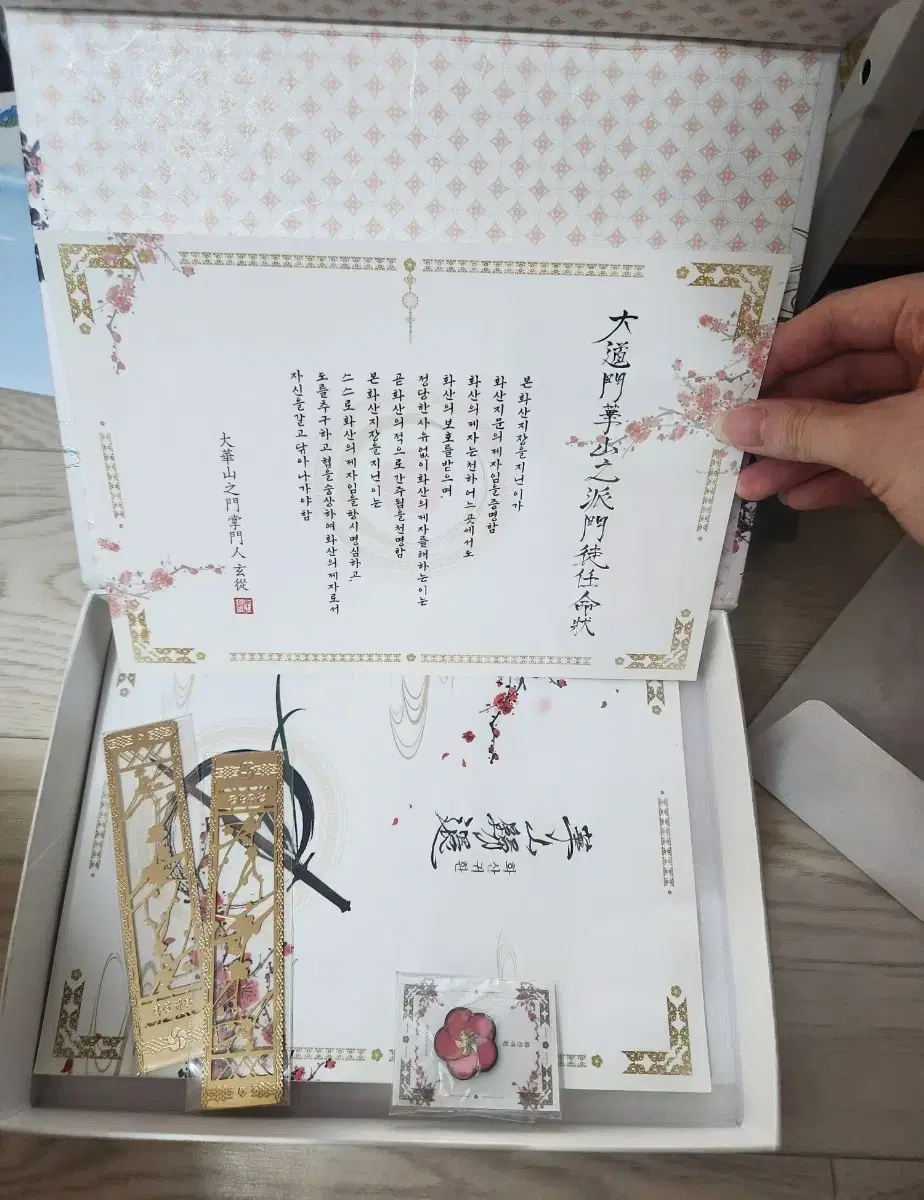 大道門華山之派門徒任命狀
본 화산지장을 지닌 이가
화산지문의 제자임을 증명함
화산의 제자는 천하 어느 곳에서도
화산의 보호를 받으며
정당한 사유 없이 화산의 제자를 해하는 이는
곧 화산의 적으로 간주됨을 천명함
본 화산지장을 지닌 이는
스스로 화산의 제자임을 항시 명심하고
도를 추구하고 협을 숭상하여 화산의 제자로서
자신을 갈고 닦아 나가야 함
大華山之門 掌門人 玄從
華山歸還
화산귀환
화산귀환